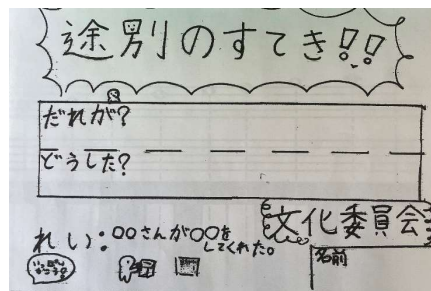 途別のすてき!!
だれが?
どうした?
文化委員会
れい:〇〇さんが〇〇を
してくれた。
名前